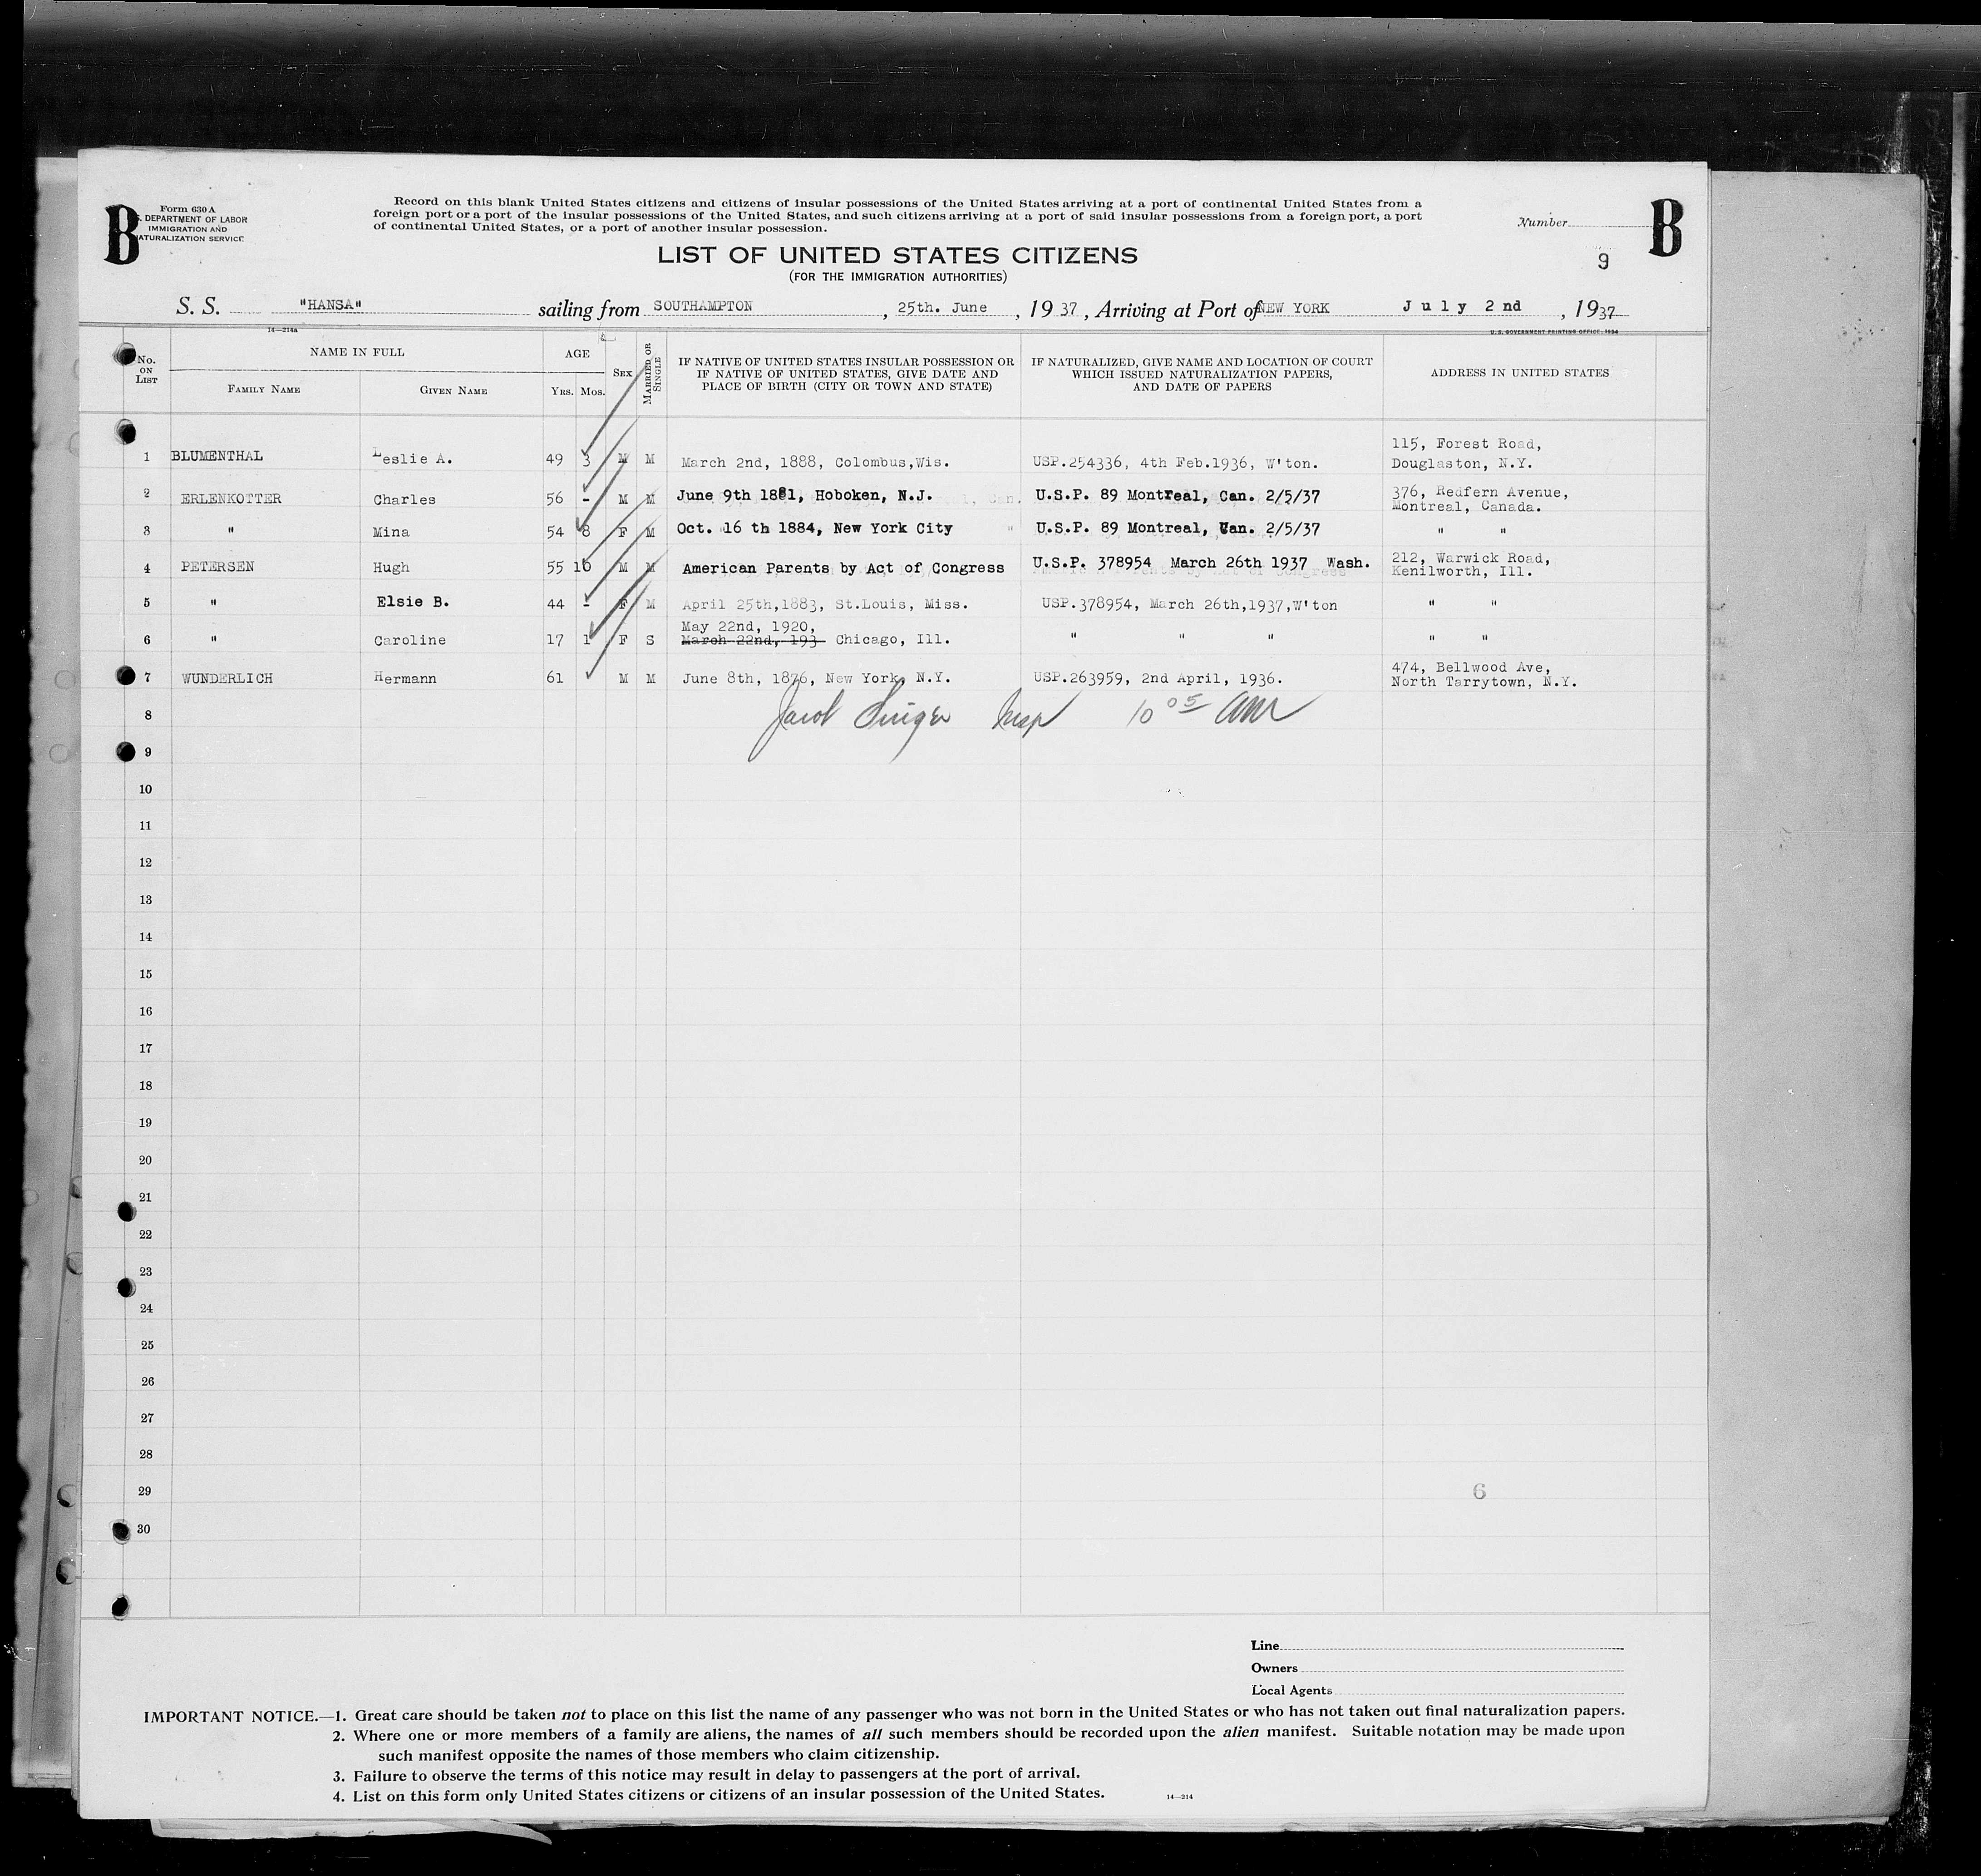 B
Form 630 A
. DEPARTMENT OF LABOR
IMMIGRATION AND
ATURALIZATION SERVICE
Record on this blank United States citizens and citizens of insular possessions of the United States arriving at a port of continental United States from a
foreign port or a port of the insular possessions of the United States, and such citizens arriving at a port of said insular possessions from a foreign port, a port
of continental United States, or a port of another insular possession.
Number
B
LIST OF UNITED STATES CITIZENS
(FOR THE IMMIGRATION AUTHORITIES)
9
S. S. "HANSA" sailing from SOUTHAMPTON , 25th. June , 19 37 , Arriving at Port of NEW YORK July 2nd , 19 37
14—214a
U.S. GOVERNMENT PRINTING OFFICE: 1934
No. ON LIST
NAME IN FULL
FAMILY NAME
GIVEN NAME
AGE
YRS. MOS.
SEX
MARRIED OR SINGLE
IF NATIVE OF UNITED STATES INSULAR POSSESSION OR
IF NATIVE OF UNITED STATES, GIVE DATE AND
PLACE OF BIRTH (CITY OR TOWN AND STATE)
IF NATURALIZED, GIVE NAME AND LOCATION OF COURT
WHICH ISSUED NATURALIZATION PAPERS,
AND DATE OF PAPERS
ADDRESS IN UNITED STATES
1 BLUMENTHAL Leslie A. 49 3 M M March 2nd, 1888, Colombus,Wis. USP.254336, 4th Feb.1936, W'ton. 115, Forest Road,
Douglaston, N.Y.
2 ERLENKOTTER Charles 56 - M M June 9th 1881, Hoboken, N.J. U.S.P. 89 Montreal, Can. 2/5/37 376, Redfern Avenue,
Montreal, Canada.
3 " Mina 54 8 F M Oct. 16 th 1884, New York City U.S.P. 89 Montreal, Can. 2/5/37 " "
4 PETERSEN Hugh 55 10 M M American Parents by Act of Congress U.S.P. 378954 March 26th 1937 Wash. 212, Warwick Road,
Kenilworth, Ill.
5 " Elsie B. 44 - F M April 25th,1883, St.Louis, Miss. USP.378954, March 26th,1937,W'ton " "
6 " Caroline 17 1 F S May 22nd, 1920,
March 22nd, 193 Chicago, Ill. " " " " "
7 WUNDERLICH Hermann 61 M M June 8th, 1876, New York, N.Y. USP.263959, 2nd April, 1936. 474, Bellwood Ave,
North Tarrytown, N.Y.
8 Singer Insp 10 05 AM
9
10
11
12
13
14
15
16
17
18
19
20
21
22
23
24
25
26
27
28
29 6
30
Line
Owners
Local Agents
IMPORTANT NOTICE.—1. Great care should be taken not to place on this list the name of any passenger who was not born in the United States or who has not taken out final naturalization papers.
2. Where one or more members of a family are aliens, the names of all such members should be recorded upon the alien manifest. Suitable notation may be made upon
such manifest opposite the names of those members who claim citizenship.
3. Failure to observe the terms of this notice may result in delay to passengers at the port of arrival.
4. List on this form only United States citizens or citizens of an insular possession of the United States.
14—214